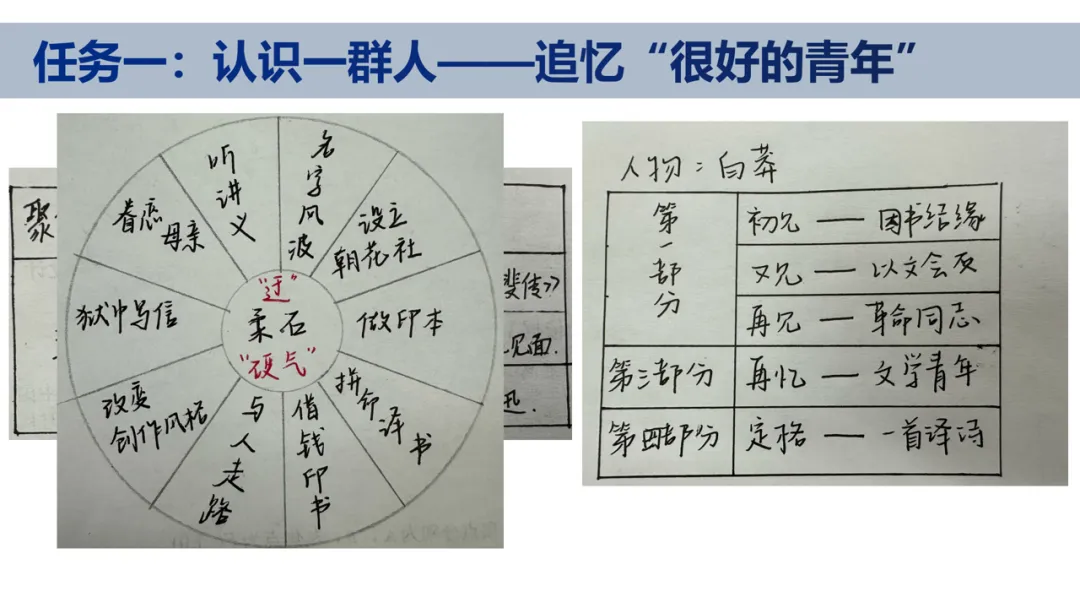 任务一：认识一群人——追忆“很好的青年”
聚
名字风波
设立
朝花社
做印本
拼命译书
借钱印书
与人走路
改变
创作风格
狱中写信
眷恋
母亲
听讲义
“迂”
柔石
“硬气”
斐传》
见面.
迅.
人物：白莽
第一部分
初见——因书结缘
又见——以文会友
再见——革命同志
第三部分 再忆——文学青年
第四部分 定格——一首译诗